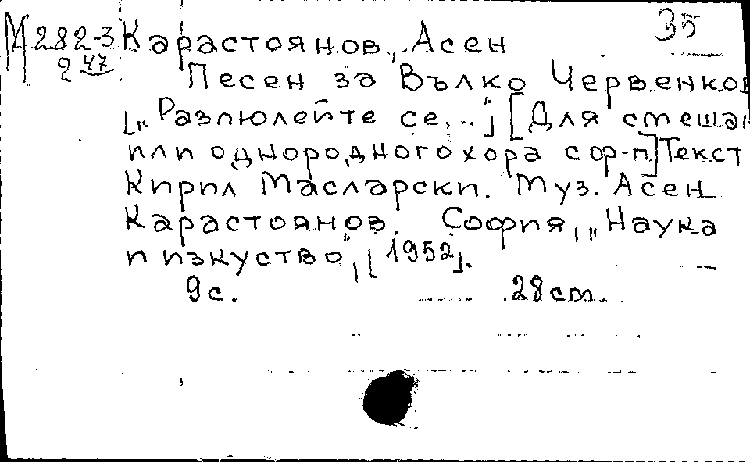 35
М 282-3 Карастоянов, Асен
2 47
Песен за Вълко Червенков
[„Разлюлейте се...“] [Для смешан
или однородного хора с ор-п] Текст
Кирил Масларски. Муз. Асен
Карастоянов. София, „Наука
и изкуство“, [1952].
9 с. 28 cm.